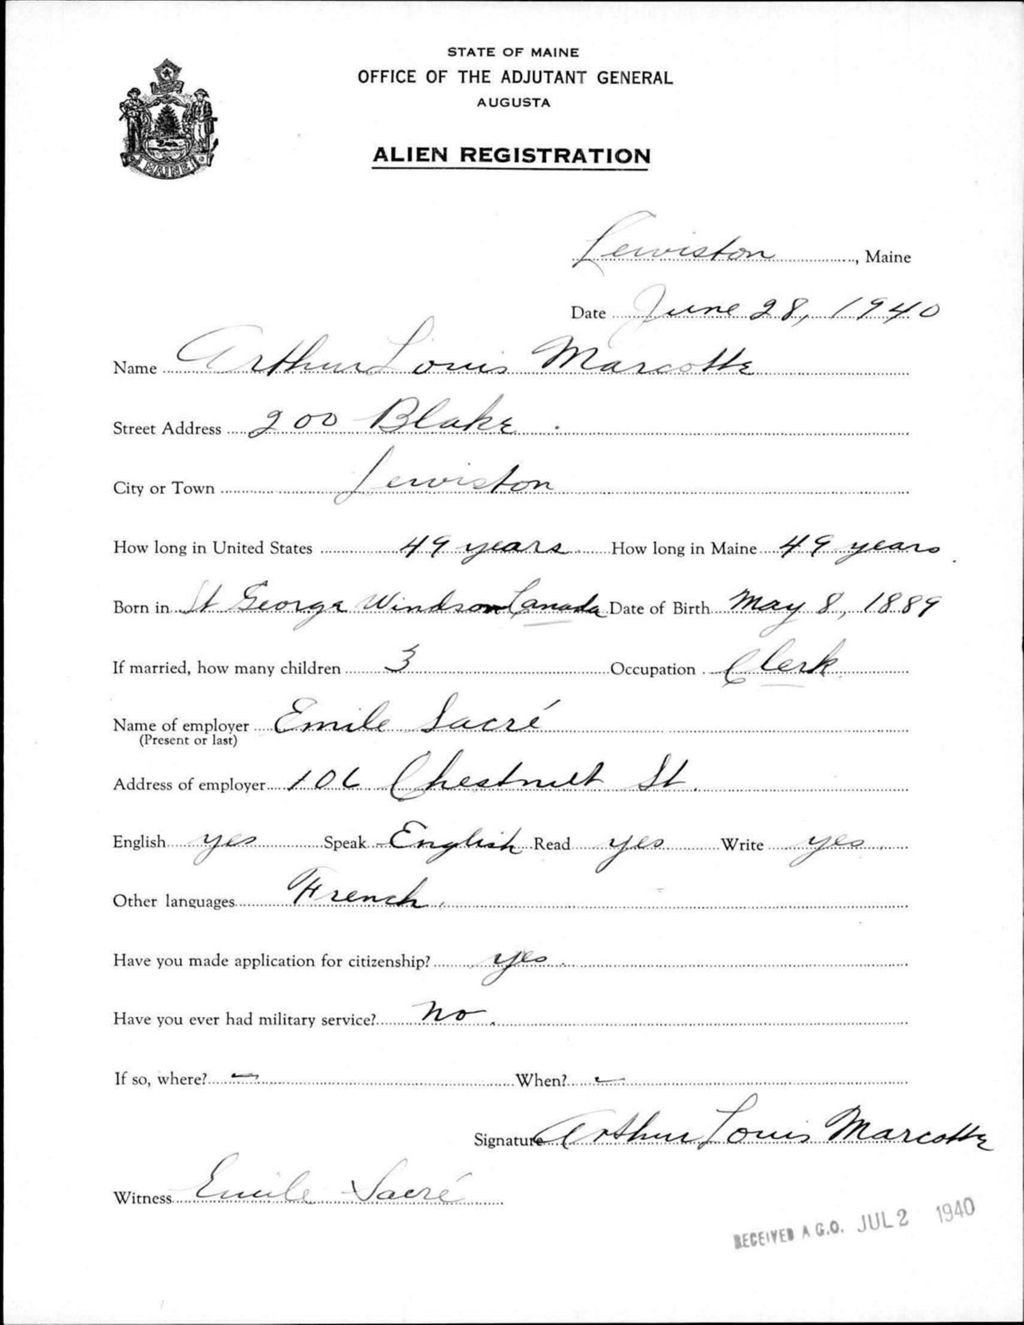 STATE OF MAINE
OFFICE OF THE ADJUTANT GENERAL
AUGUSTA
ALIEN REGISTRATION
MAINE
Lewiston, Maine
Date June 28, 1940
Name Arthur Louis Marcotte
Street Address 200 Blake
City or Town Lewiston
How long in United States 49 years How long in Maine 49 years
Born in St George Windsor Canada Date of Birth May 8, 1889
If married, how many children 3 Occupation Clerk
Name of employer Emile Sacré
(Present or last)
Address of employer 106 Chestnut St.
English yes Speak English Read yes Write yes
Other languages French
Have you made application for citizenship? yes
Have you ever had military service? no
If so, where? — When? —
Signature Arthur Louis Marcotte
Witness Emile Sacré
RECEIVED A.G.O. JUL 2 1940